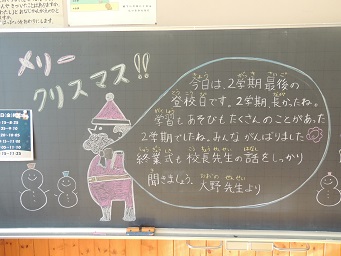 メリー
クリスマス!!
今日は、2学期最後の
登校日です。2学期、長かったね。
学習もあそびもたくさんのことがあった
2学期でしたね。みんながんばりました
終業式も校長先生の話をしっかり
聞きましょう。大野先生より